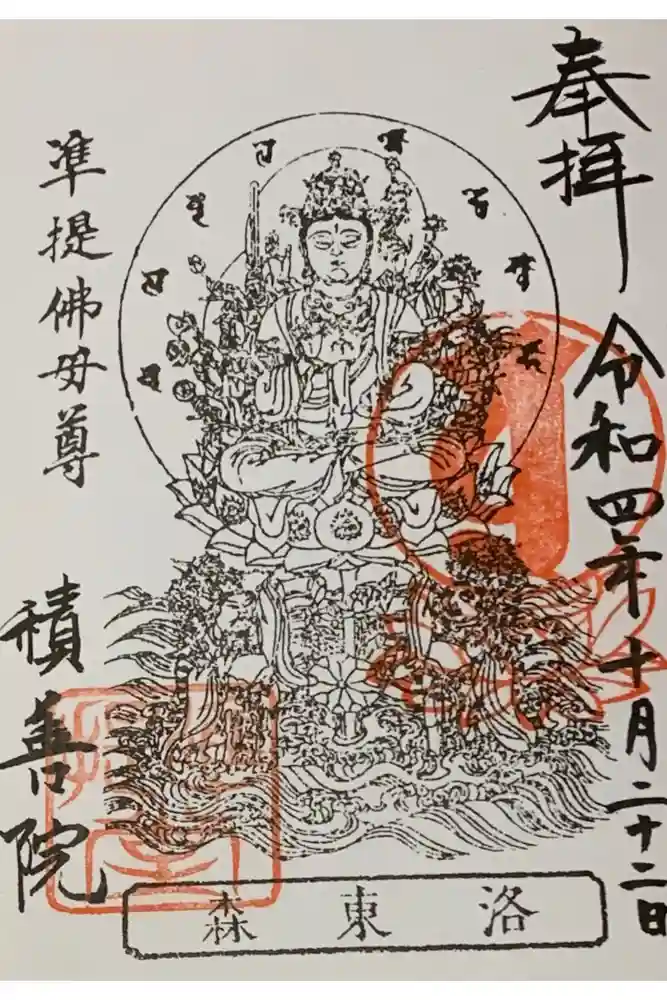 奉拝
令和四年十月二十二日
凖提佛母尊
積善院
洛東森